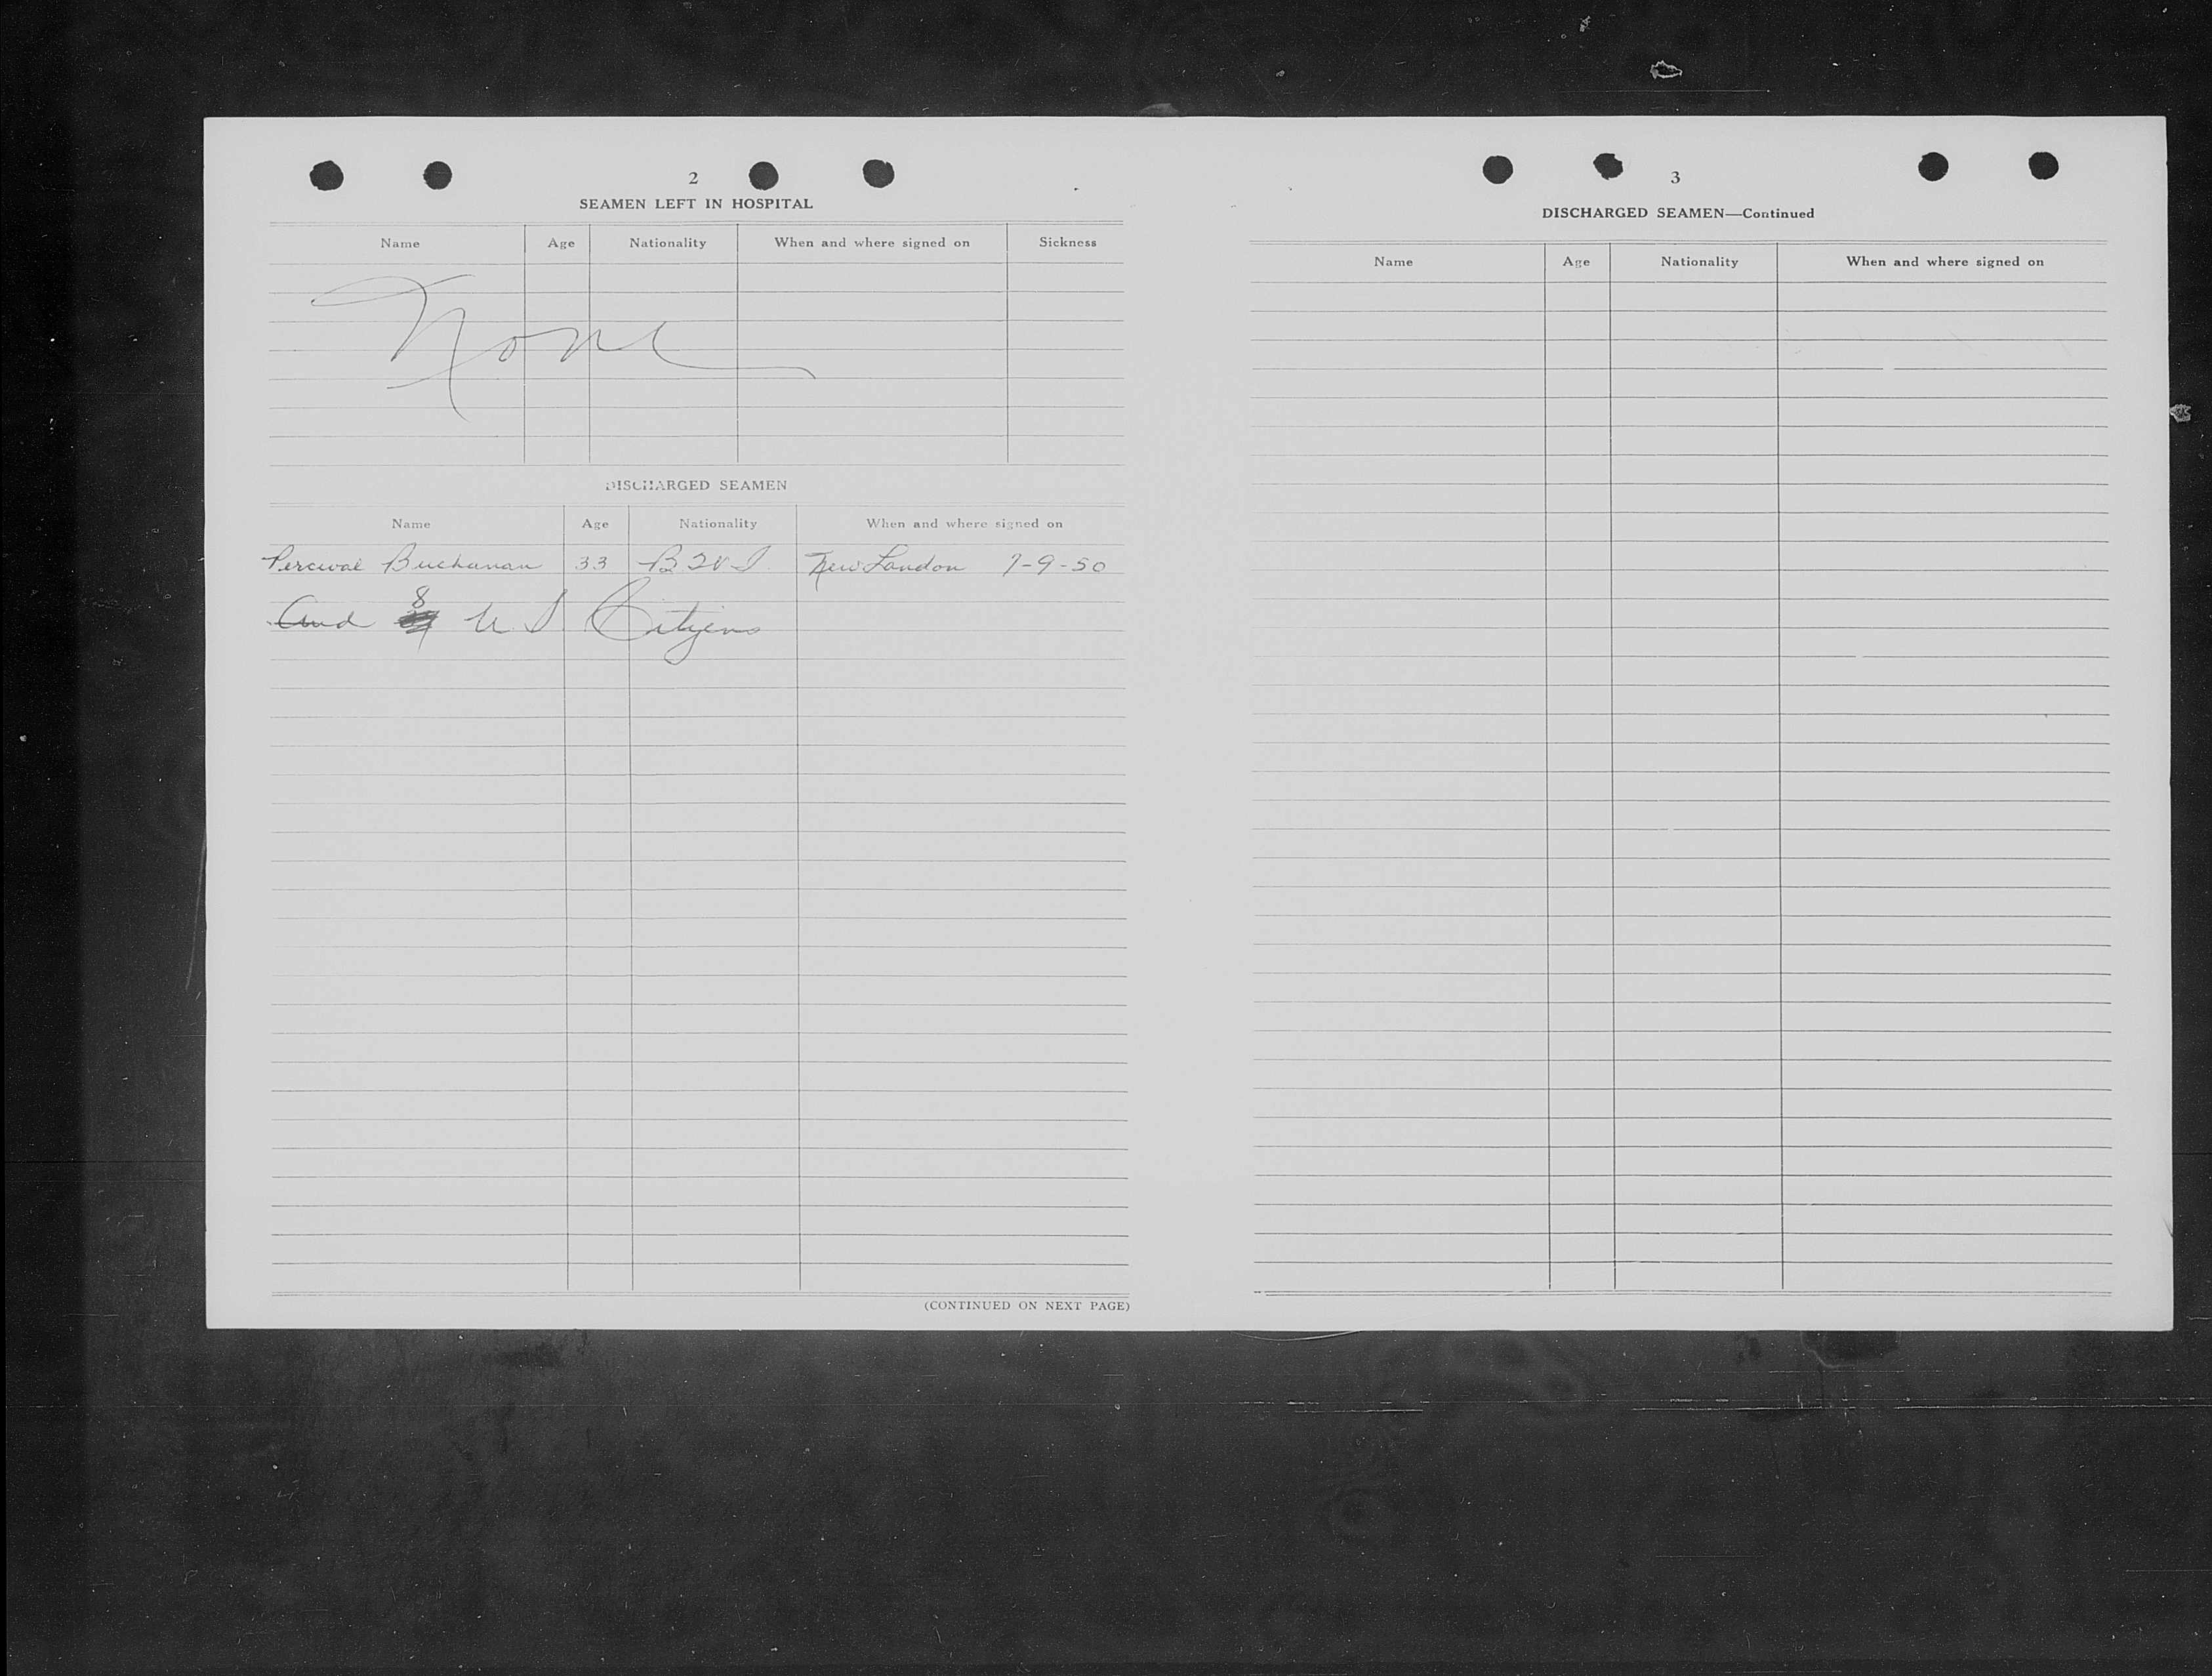 2
SEAMEN LEFT IN HOSPITAL
Name Age Nationality When and where signed on Sickness
None
DISCHARGED SEAMEN
Name Age Nationality When and where signed on
Percival Buchanan 33 B.W.I. New London 7-9-50
And 8 U S Citizens
(CONTINUED ON NEXT PAGE)
3
DISCHARGED SEAMEN—Continued
Name Age Nationality When and where signed on